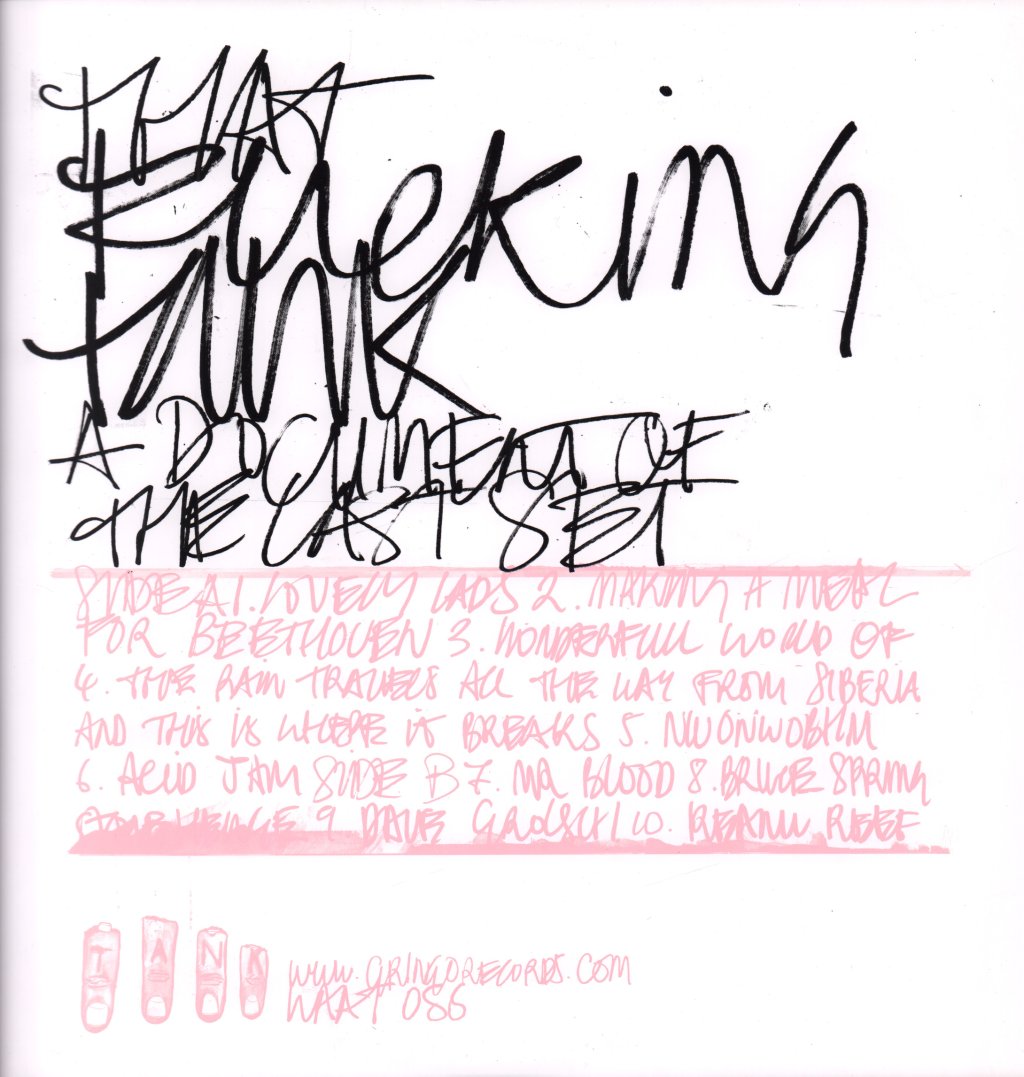 THAT
FUCKING
TANK
A DOCUMENT OF
THE LAST SET
SIDE A 1. LOVELY LADS 2. MAKING A MEAL
FOR BEETHOVEN 3. WONDERFULL WORLD OF
4. THE RAIN TRAVELS ALL THE WAY FROM SIBERIA
AND THIS IS WHERE IT BREAKS 5. NWONWOBHM
6. ACID JAM SIDE B 7. MR BLOOD 8. BRUCE SPRING
9 DAVE GROLSCH 10. KEANU REEF
TANK
WWW.GRINGORECORDS.COM
WAAT 056